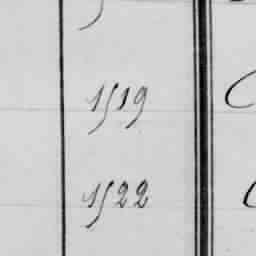 1519
1522